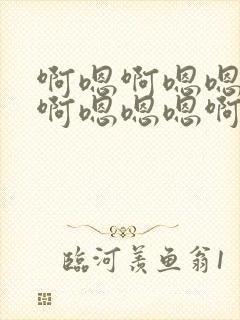 啊嗯啊嗯嗯
啊嗯嗯嗯啊
临河羡鱼翁1